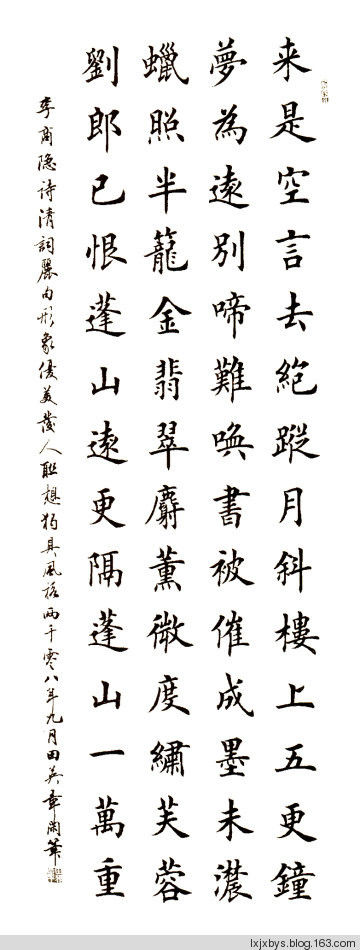 来是空言去絕蹤月斜樓上五更鐘
夢為遠別啼難喚書被催成墨未濃
蠟照半籠金翡翠麝薰微度繡芙蓉
劉郎已恨蓬山遠更隔蓬山一萬重
李商隐詩清詞麗句形象優美發人联想独具風格两千零八年九月田英章筆
lxjxbys.blog.163.com